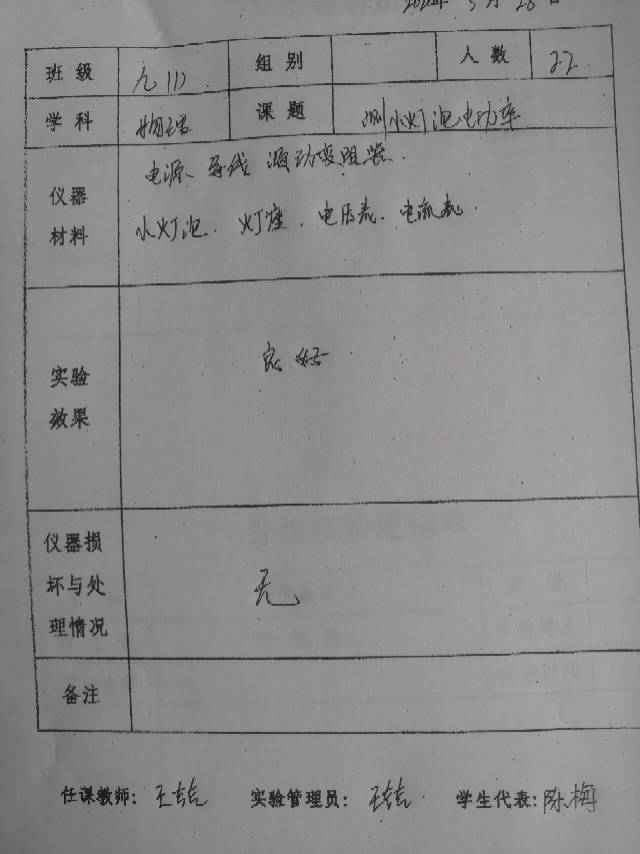 月28日
班级 九(1) 组别 人数 22
学科 物理 课题 测小灯泡电功率
仪器材料 电源、导线 滑动变阻器.
小灯泡. 灯座. 电压表. 电流表.
实验效果 良好
仪器损坏与处理情况 无
备注
任课教师: 实验管理员: 学生代表: 陈梅